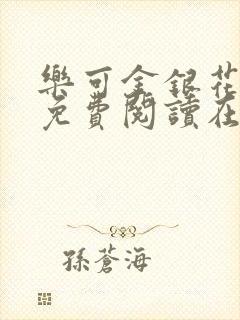 樂可金銀花
免費閱讀在
孫蒼海